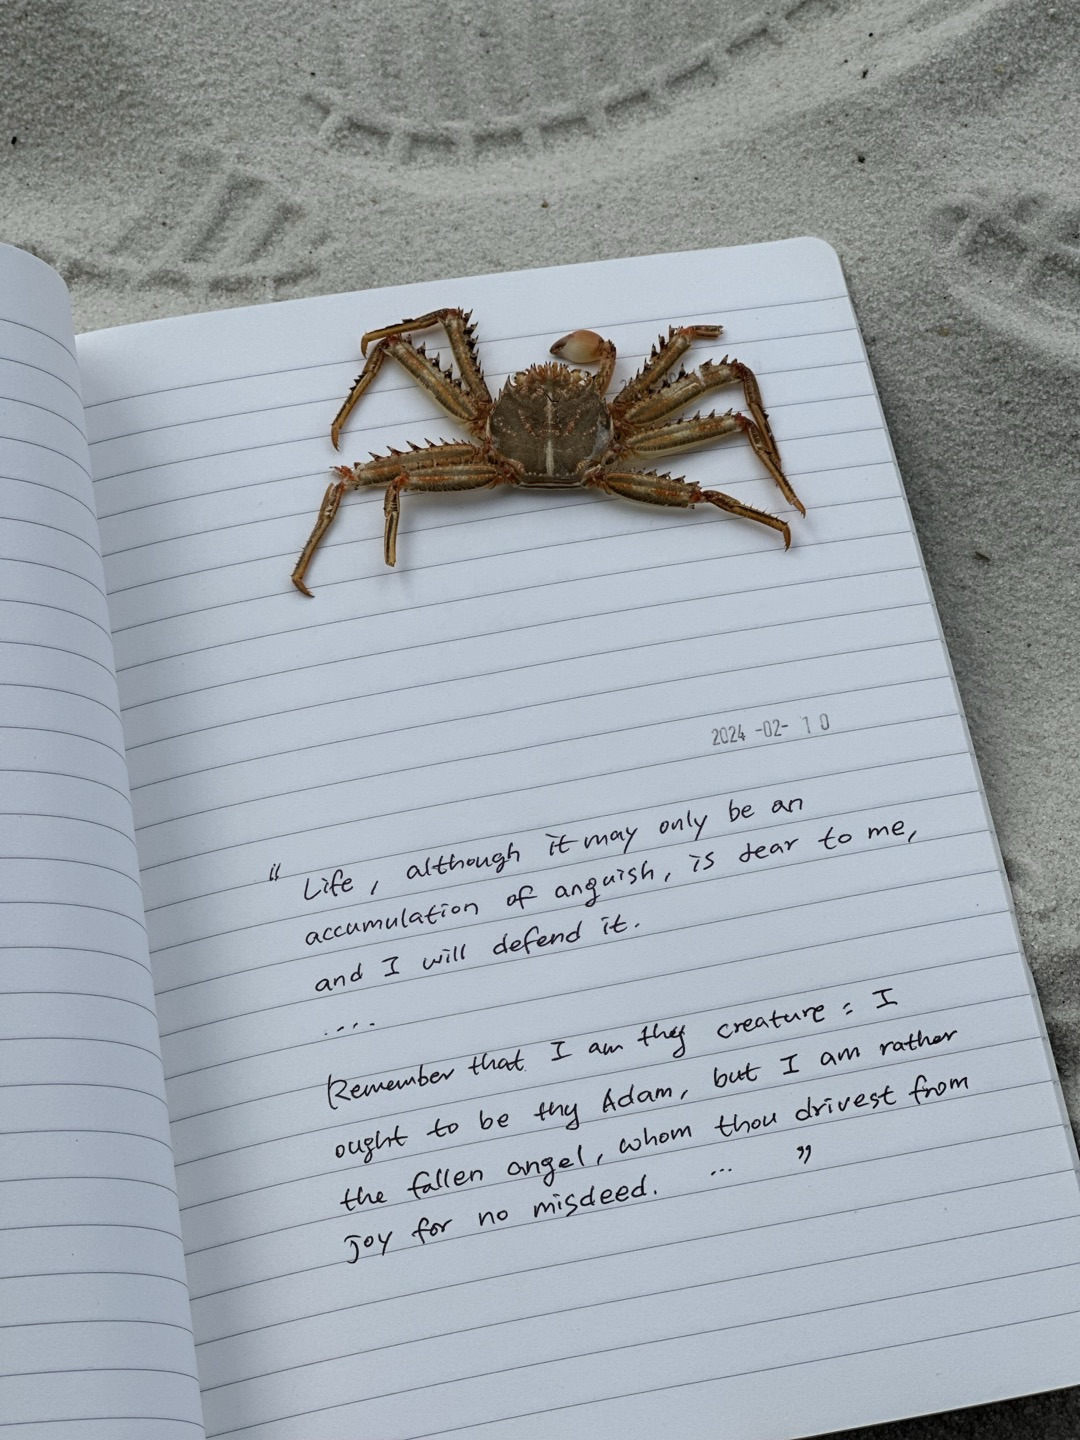 2024-02-10
“ Life, although it may only be an
accumulation of anguish, is dear to me,
and I will defend it.
....
Remember that I am thy creature: I
ought to be thy Adam, but I am rather
the fallen angel, whom thou drivest from
joy for no misdeed. ... ”